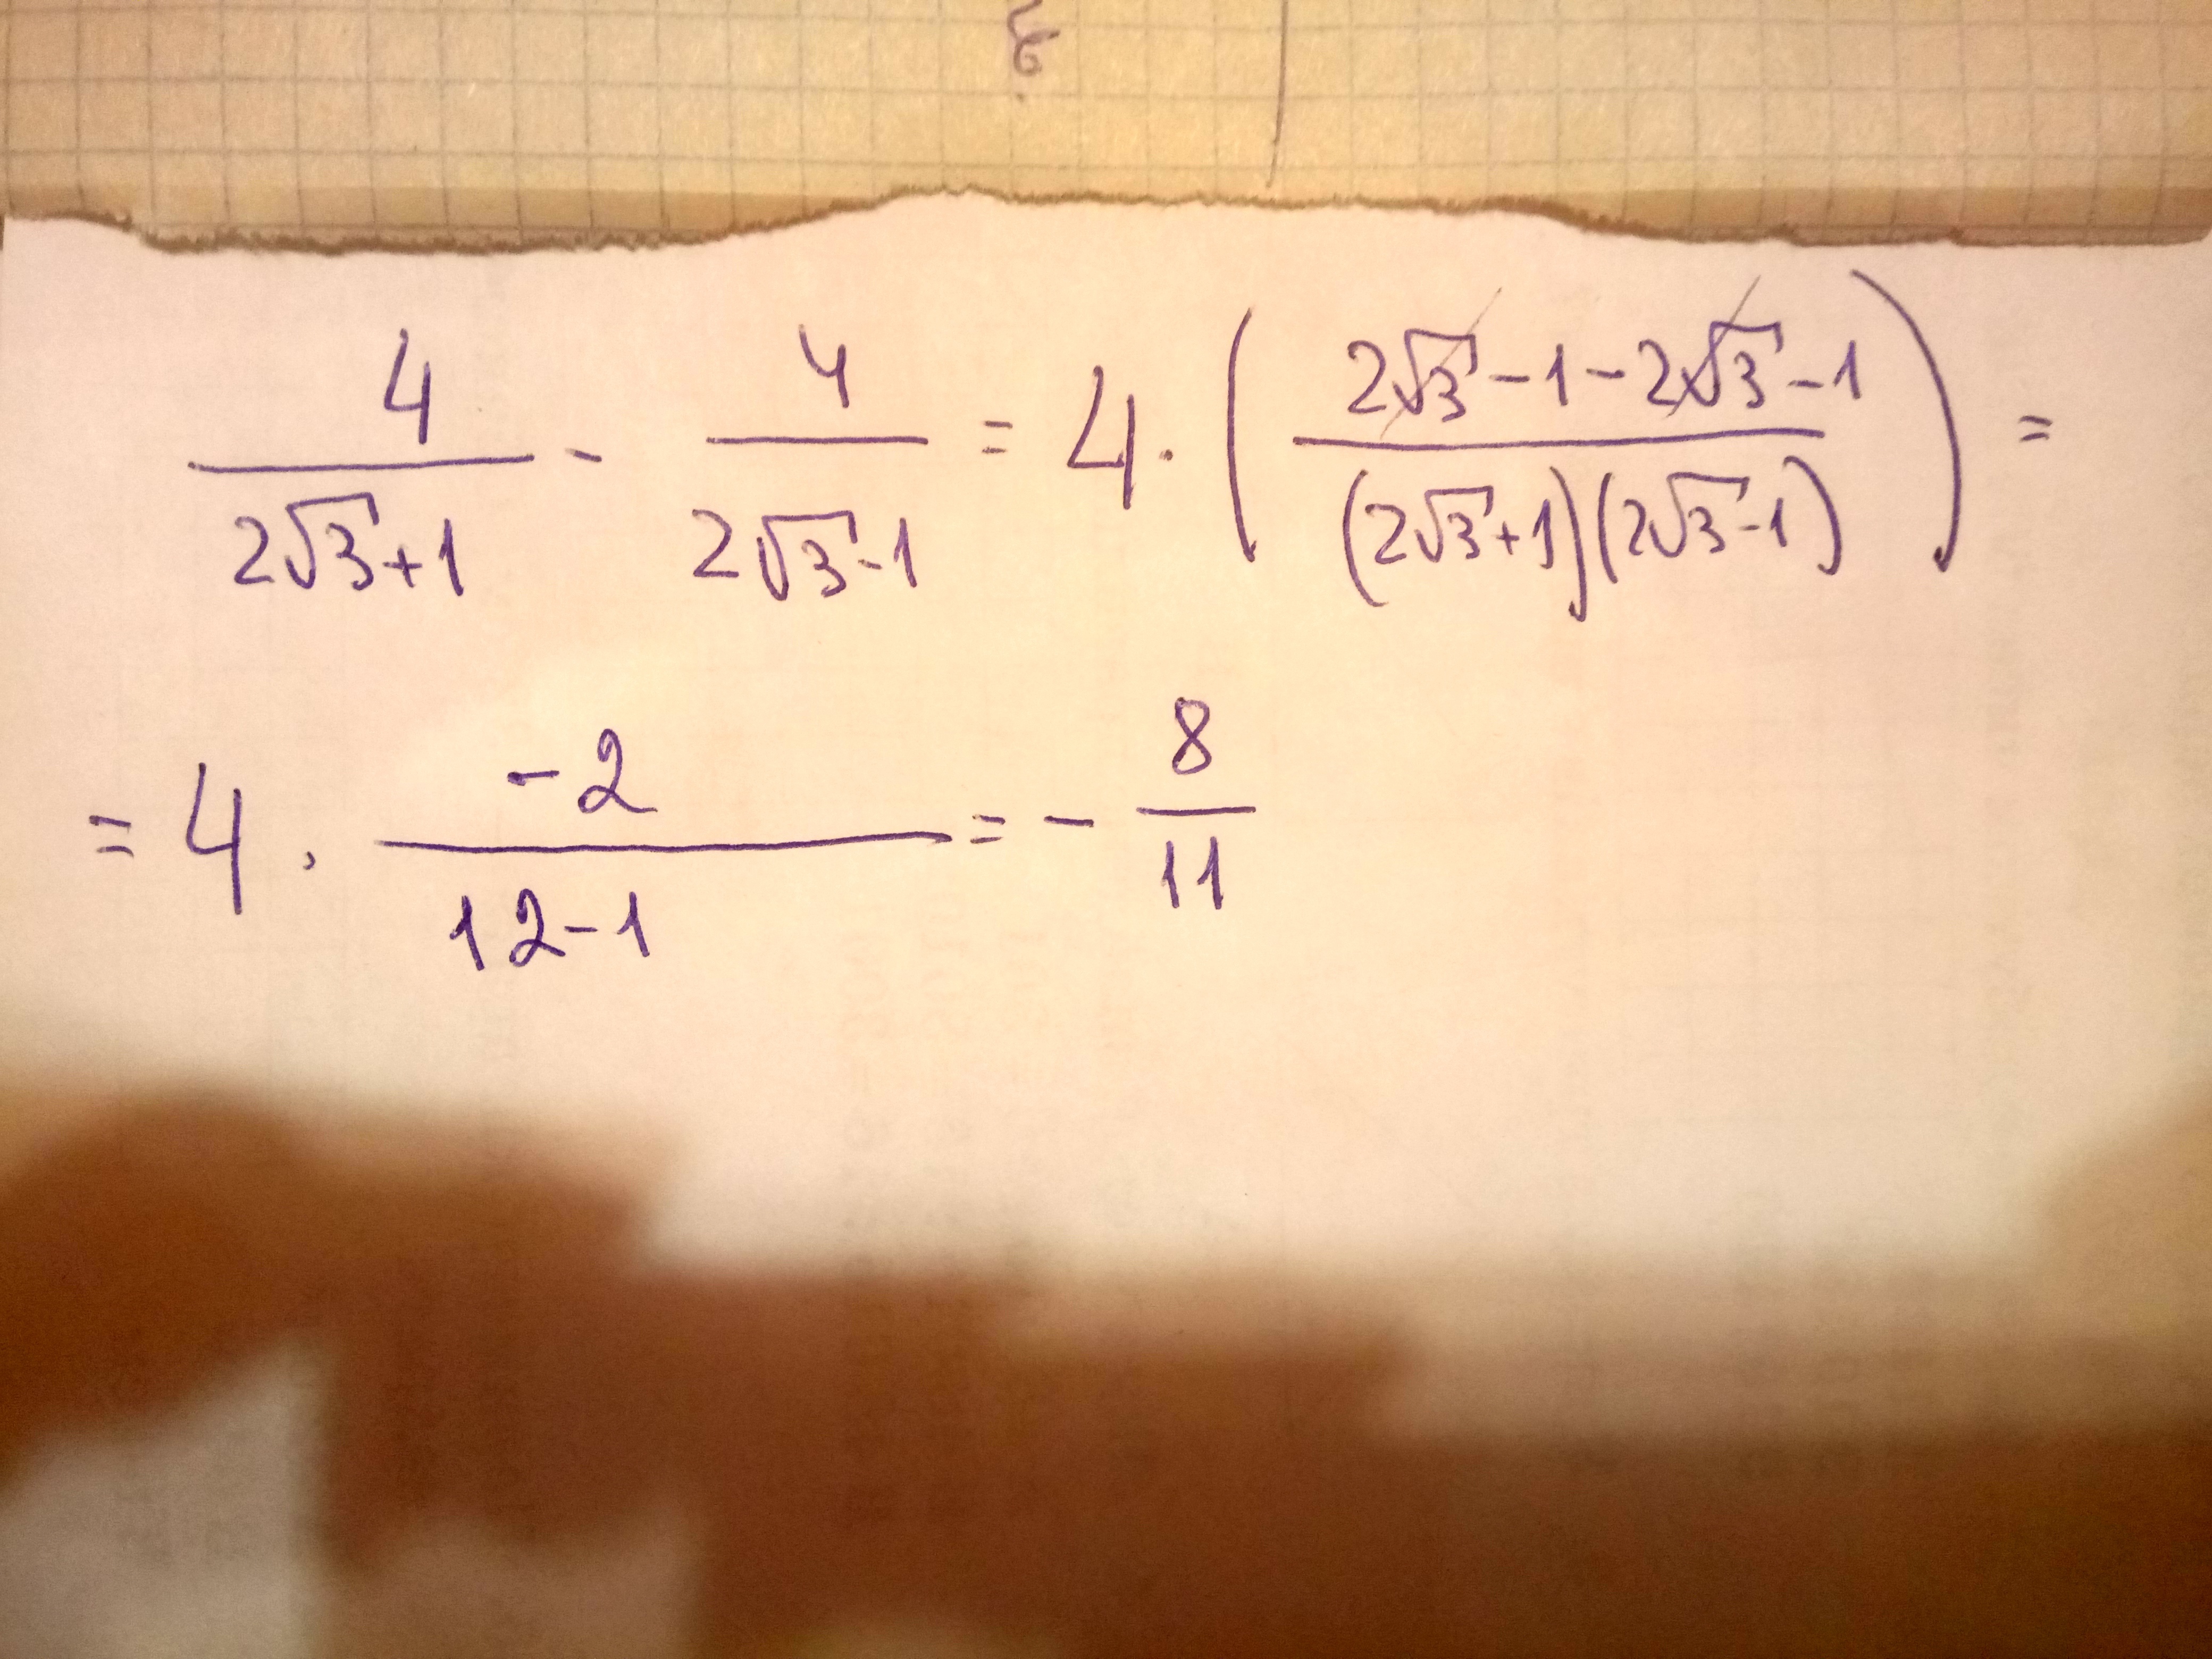 4/(2√3+1) - 4/(2√3-1) = 4·((2√3-1-2√3-1)/((2√3+1)(2√3-1))) =
= 4·(-2)/(12-1) = -8/11